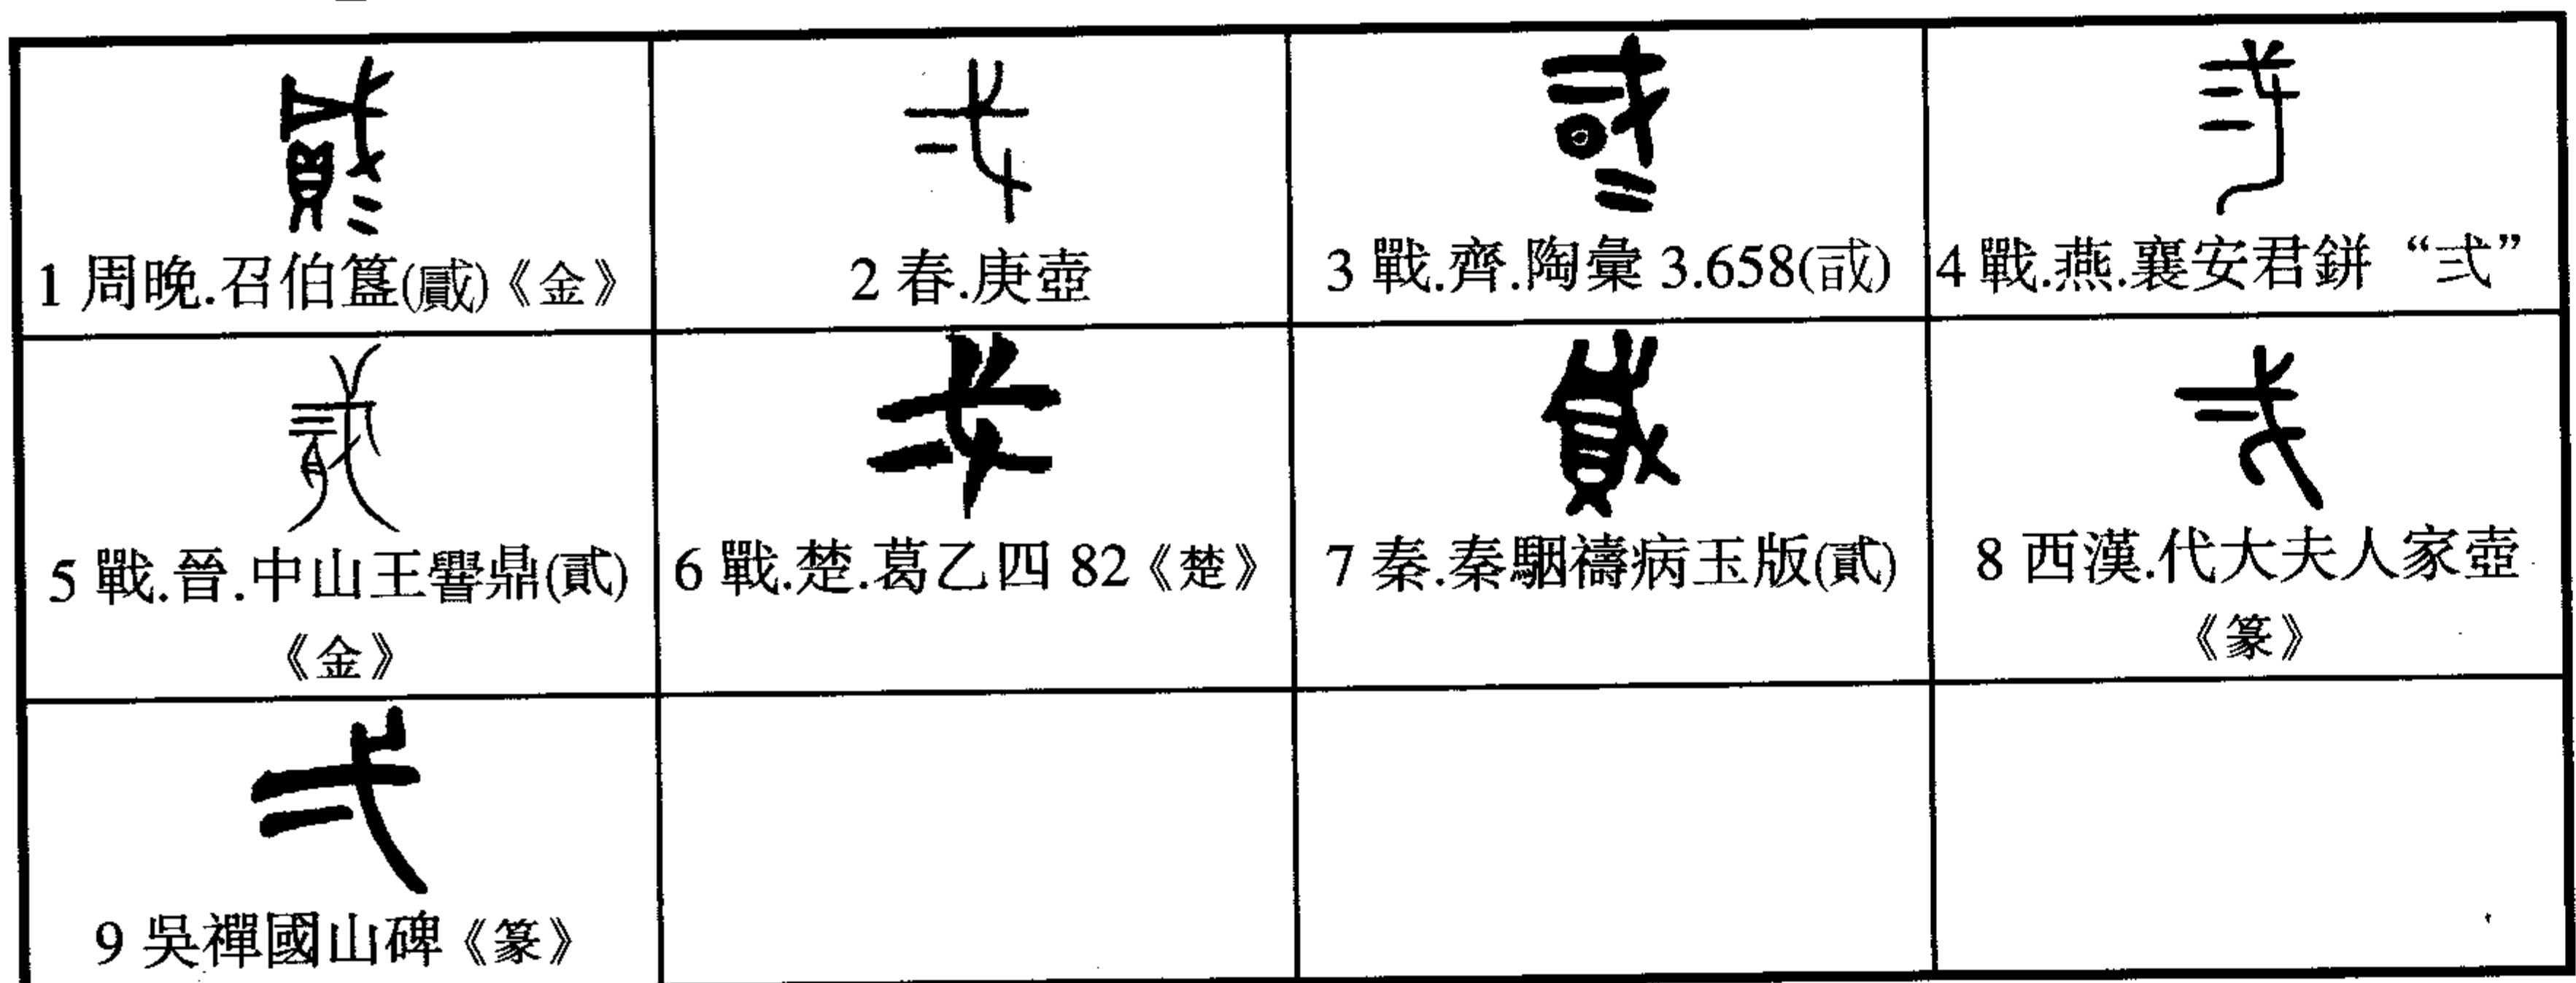 1 周晚.召伯簋(貳)《金》
2 春.庚壺
3 戰.齊.陶彙 3.658(戓)
4 戰.燕.襄安君鉼“弍”
5 戰.晉.中山王譽鼎(貳)
《金》
6 戰.楚.葛乙四 82《楚》
7 秦.秦駰禱病玉版(貳)
8 西漢.代大夫人家壺
《篆》
9 吳禪國山碑《篆》